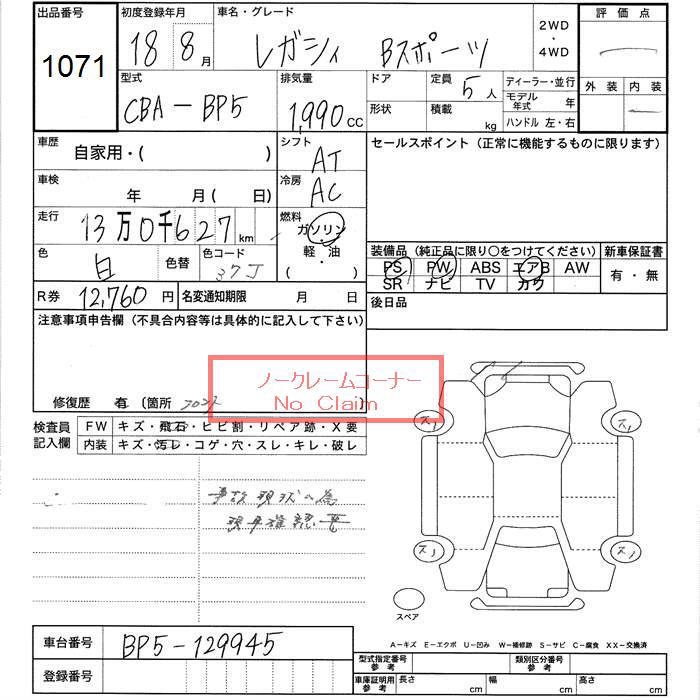 出品番号 初度登録年月 車名・グレード 2WD・4WD 評価点
1071 18 8月 レガシィ Bスポーツ
型式 排気量 ドア 定員 5人 ディーラー・並行 外装 内装
CBA-BP5 1,990cc 形状 積載 kg モデル年式 年 ハンドル 左・右
車歴 自家用・( ) シフト AT セールスポイント (正常に機能するものに限ります)
車検 年 月( 日) 冷房 AC
走行 13万0千627km 燃料 ガソリン
色 白 色替 色コード 37J 軽・油 ( ) 装備品 (純正品に限り○をつけてください) 新車保証書
PS PW ABS エアB AW 有・無
R券 12,760円 名変通知期限 月 日 SR ナビ TV カワ
注意事項申告欄 (不具合内容等は具体的に記入して下さい) 後日品
ノークレームコーナー
No Claim
修復歴 有 〔箇所 フロント
検査員記入欄 FW キズ・飛石・ヒビ割・リペア跡・X要
内装 キズ・汚レ・コゲ・穴・スレ・キレ・破レ
事故現状の為
現車確認要
ス1 ス1
ス1 ス1
スペア
車台番号 BP5-129945 A-キズ E-エクボ U-凹み W-補修跡 S-サビ C-腐食 XX-交換済
登録番号 型式指定番号 参考 類別区分番号 参考
車庫証明用 参考 長さ cm 幅 cm 高さ cm